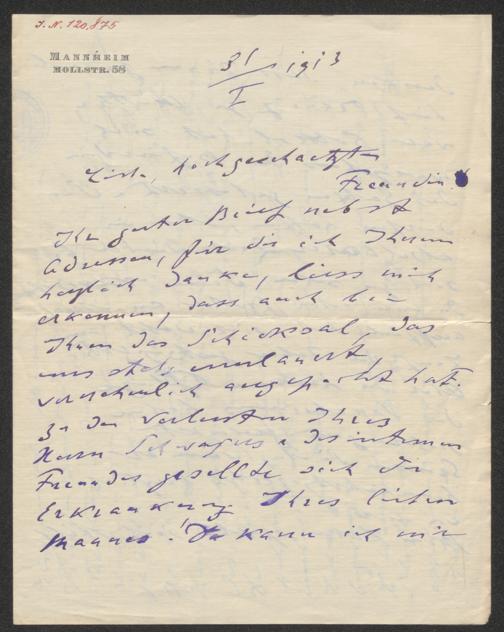 J. N. 120,875
MANNHEIM
MOLLSTR. 58
31/I 1913
Liebe, hochgeschaetzte
Freundin
Ihr guter Brief nebst
Adressen, für die ich Ihnen
herzlich danke, liess mich
erkennen, dass auch bei
Ihnen das Schicksal, das
uns stets umlauert,
vernehmlich angepocht hat.
Zu den Verlusten Ihres
Herrn Schwagers u des intimen
Freundes gesellte sich die
Erkrankung Ihres lieben
Mannes! Da kann ich mir